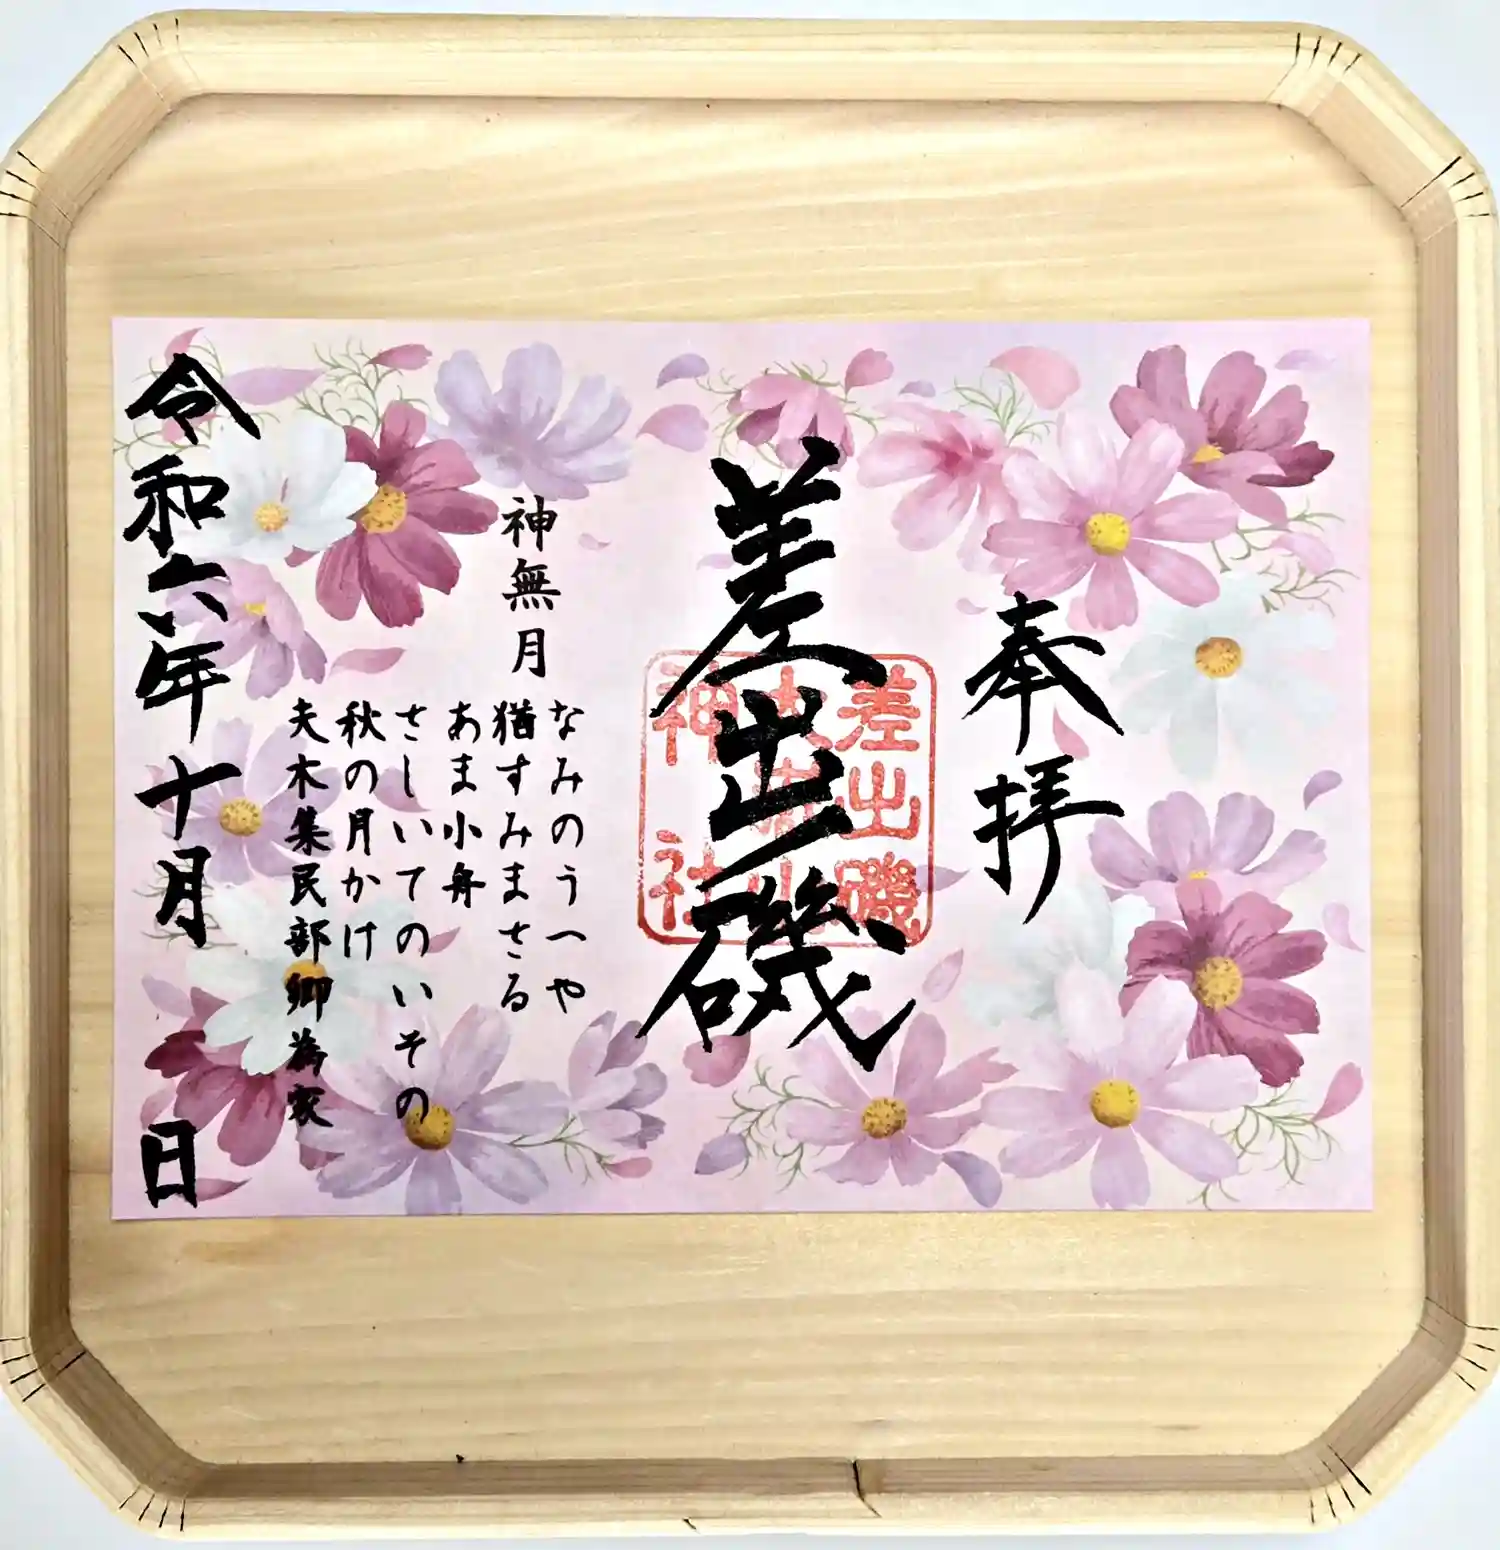 奉拝
差出磯
差出磯
神社
神無月
なみのうへや
猶すみまさる
あま小舟
さしいてのいその
秋の月かけ
夫木集民部卿為家
令和六年十月 日